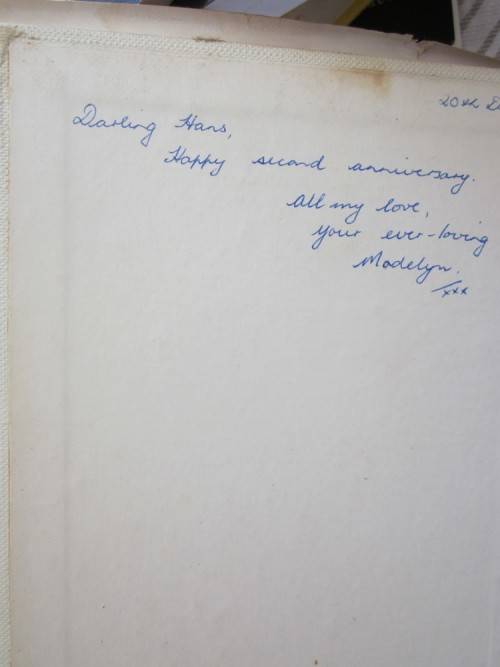 20th
Darling Hans,
Happy second anniversary.
All my love,
your ever-loving
Madelyn.
xxx